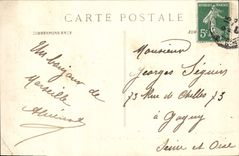 CARTE POSTALE
CORRESPONDANCE
Un bonjour de
Marseille
Monsieur
Georges Séguin
73 Rue de Chelles 73
à Gagny
Seine et Oise
5c